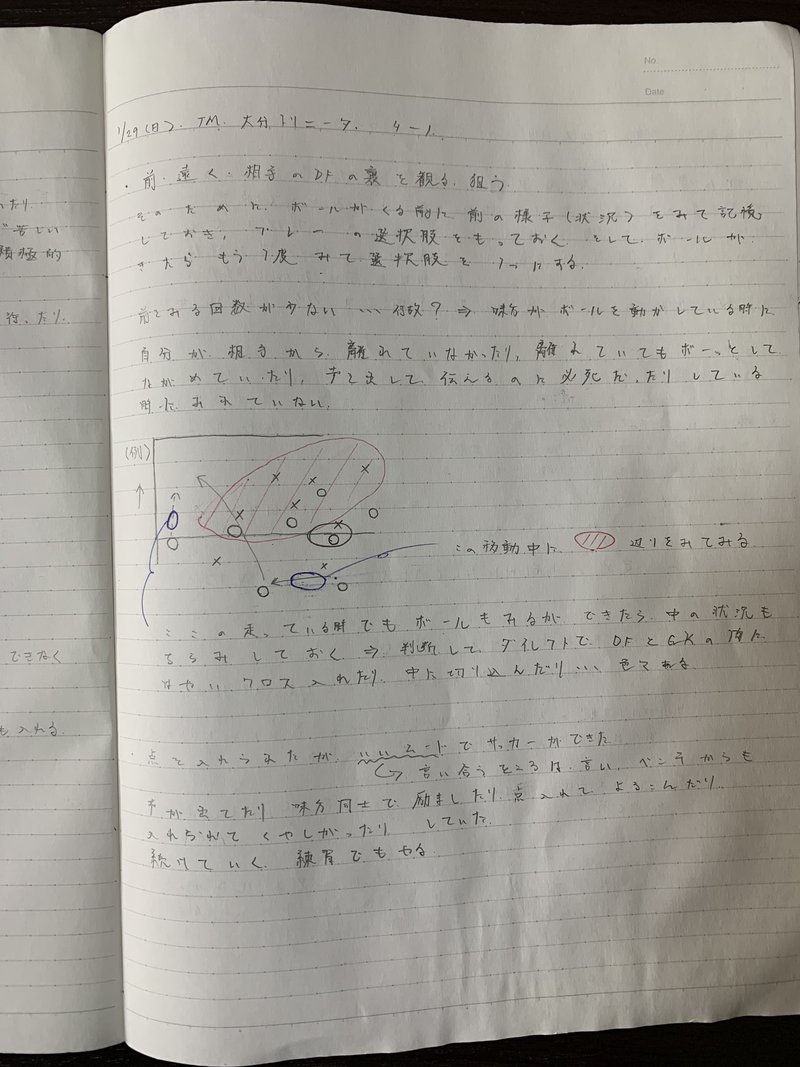 ったり
苦しい
積極的
待ったり
できなく
も入れる
No
Date
1/29(日). TM. 大分トリニータ. 4-1.
・前. 遠く. 相手のDFの裏を観る. 狙う
そのために. ボールがくる前に前の様子(状況)をみて記憶
しておき, プレーの選択肢をもっておく. そして. ボールが
きたらもう1度みて選択肢を1つにする.
前をみる回数が少ない … 何故? ⇒ 味方がボールを動かしている時に
自分が相手から. 離れていなかったり, 離れていてもボーっとして
ながめていたり, 声を出して. 伝えるのに必死だったりしている
時にみれていない.
(例)
この移動中に 辺りをみてみる
ここの走っている時でもボールもみるができたら. 中の状況も
ちらみしておく ⇒ 判断して. ダイレクトで. DFとGKの間に
はやいクロス入れたり. 中に切り込んだり… 色々ある
・点を入れられたが. いいムードでサッカーができた
↪ 言い合うところは. 言い. ベンチからも
声が出てたり 味方同士で励ましたり. 点入れて よろこんだり
入れられて くやしがったり していた.
続けていく. 練習でもやる.